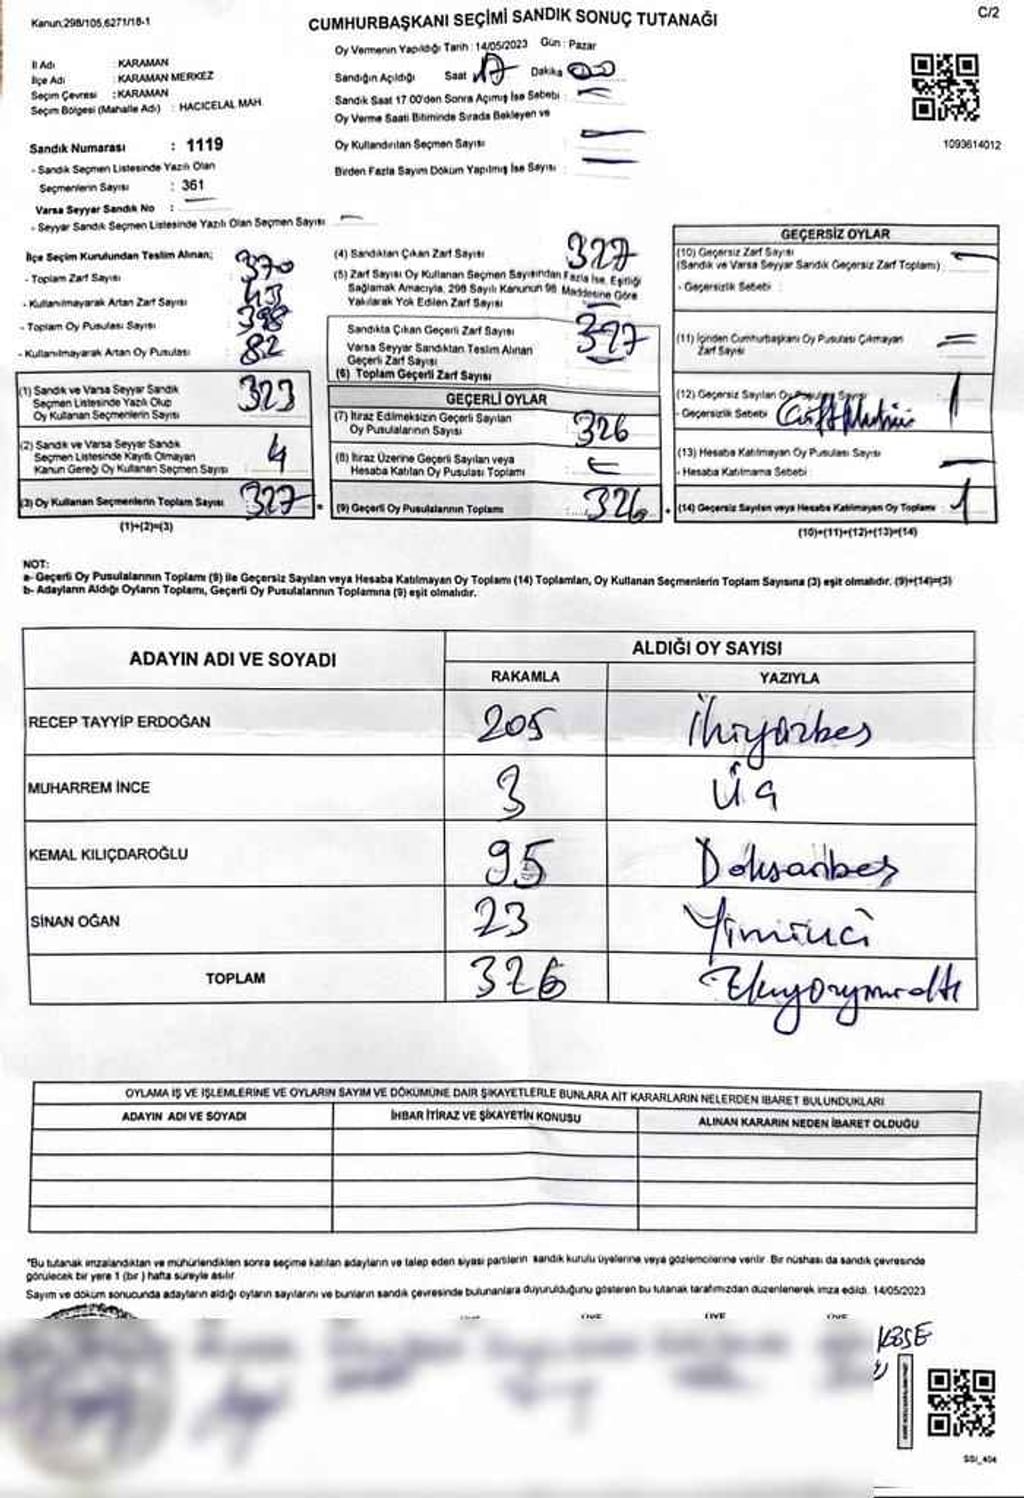 Kanun:298/105,6271/18-1
C/2
CUMHURBAŞKANI SEÇİMİ SANDIK SONUÇ TUTANAĞI
Oy Vermenin Yapıldığı Tarih : 14/05/2023 Gün : Pazar
İl Adı : KARAMAN
İlçe Adı : KARAMAN MERKEZ
Seçim Çevresi : KARAMAN
Seçim Bölgesi (Mahalle Adı) : HACICELAL MAH.
Sandığın Açıldığı Saat 17 Dakika 00
Sandık Saat 17 00'den Sonra Açımış İse Sebebi :
Oy Verme Saati Bitiminde Sırada Bekleyen ve
Oy Kullandırılan Seçmen Sayısı :
Birden Fazla Sayım Döküm Yapılmış İse Sayısı :
1093614012
Sandık Numarası : 1119
- Sandık Seçmen Listesinde Yazılı Olan
Seçmenlerin Sayısı : 361
Varsa Seyyar Sandık No :
- Seyyar Sandık Seçmen Listesinde Yazılı Olan Seçmen Sayısı :
İlçe Seçim Kurulundan Teslim Alınan;
- Toplam Zarf Sayısı : 370
- Kullanılmayarak Artan Zarf Sayısı : 43
- Toplam Oy Pusulası Sayısı : 398
- Kullanılmayarak Artan Oy Pusulası : 82
(1) Sandık ve Varsa Seyyar Sandık
Seçmen Listesinde Yazılı Olup
Oy Kullanan Seçmenlerin Sayısı : 323
(2) Sandık ve Varsa Seyyar Sandık
Seçmen Listesinde Kayıtlı Olmayan
Kanun Gereği Oy Kullanan Seçmen Sayısı : 4
(3) Oy Kullanan Seçmenlerin Toplam Sayısı : 327
(1)+(2)=(3)
(4) Sandıktan Çıkan Zarf Sayısı : 327
(5) Zarf Sayısı Oy Kullanan Seçmen Sayısından Fazla İse, Eşitliği
Sağlamak Amacıyla, 298 Sayılı Kanunun 98 Maddesine Göre
Yakılarak Yok Edilen Zarf Sayısı :
Sandıkta Çıkan Geçerli Zarf Sayısı : 327
Varsa Seyyar Sandıktan Teslim Alınan
Geçerli Zarf Sayısı :
(6) Toplam Geçerli Zarf Sayısı
GEÇERLİ OYLAR
(7) İtiraz Edilmeksizin Geçerli Sayılan
Oy Pusulalarının Sayısı : 326
(8) İtiraz Üzerine Geçerli Sayılan veya
Hesaba Katılan Oy Pusulası Toplamı :
(9) Geçerli Oy Pusulalarının Toplamı : 326
GEÇERSİZ OYLAR
(10) Geçersiz Zarf Sayısı
(Sandık ve Varsa Seyyar Sandık Geçersiz Zarf Toplamı) :
- Geçersizlik Sebebi :
(11) İçinden Cumhurbaşkanı Oy Pusulası Çıkmayan
Zarf Sayısı :
(12) Geçersiz Sayılan Oy Pusulası Sayısı : 1
- Geçersizlik Sebebi
(13) Hesaba Katılmayan Oy Pusulası Sayısı
- Hesaba Katılmama Sebebi :
(14) Geçersiz Sayılan veya Hesaba Katılmayan Oy Toplamı : 1
(10)+(11)+(12)+(13)=(14)
NOT:
a- Geçerli Oy Pusulalarının Toplamı (9) ile Geçersiz Sayılan veya Hesaba Katılmayan Oy Toplamı (14) Toplamları, Oy Kullanan Seçmenlerin Toplam Sayısına (3) eşit olmalıdır. (9)+(14)=(3)
b- Adayların Aldığı Oyların Toplamı, Geçerli Oy Pusulalarının Toplamına (9) eşit olmalıdır.
ADAYIN ADI VE SOYADI
ALDIĞI OY SAYISI
RAKAMLA YAZIYLA
RECEP TAYYİP ERDOĞAN 205 İkiyüzbeş
MUHARREM İNCE 3 Üç
KEMAL KILIÇDAROĞLU 95 Doksanbeş
SİNAN OĞAN 23
TOPLAM 326
OYLAMA İŞ VE İŞLEMLERİNE VE OYLARIN SAYIM VE DÖKÜMÜNE DAİR ŞİKAYETLERLE BUNLARA AİT KARARLARIN NELERDEN İBARET BULUNDUKLARI
ADAYIN ADI VE SOYADI İHBAR İTİRAZ VE ŞİKAYETİN KONUSU ALINAN KARARIN NEDEN İBARET OLDUĞU
*Bu tutanak imzalandıktan ve mühürlendikten sonra seçime katılan adayların ve talep eden siyasi partilerin sandık kurulu üyelerine veya gözlemcilerine verilir. Bir nüshası da sandık çevresinde
görülecek bir yere 1 (bir ) hafta süreyle asılır.
Sayım ve döküm sonucunda adayların aldığı oyların sayılarını ve bunların sandık çevresinde bulunanlara duyurulduğunu gösteren bu tutanak tarafımızdan düzenlenerek imza edildi. 14/05/2023
SSI_404